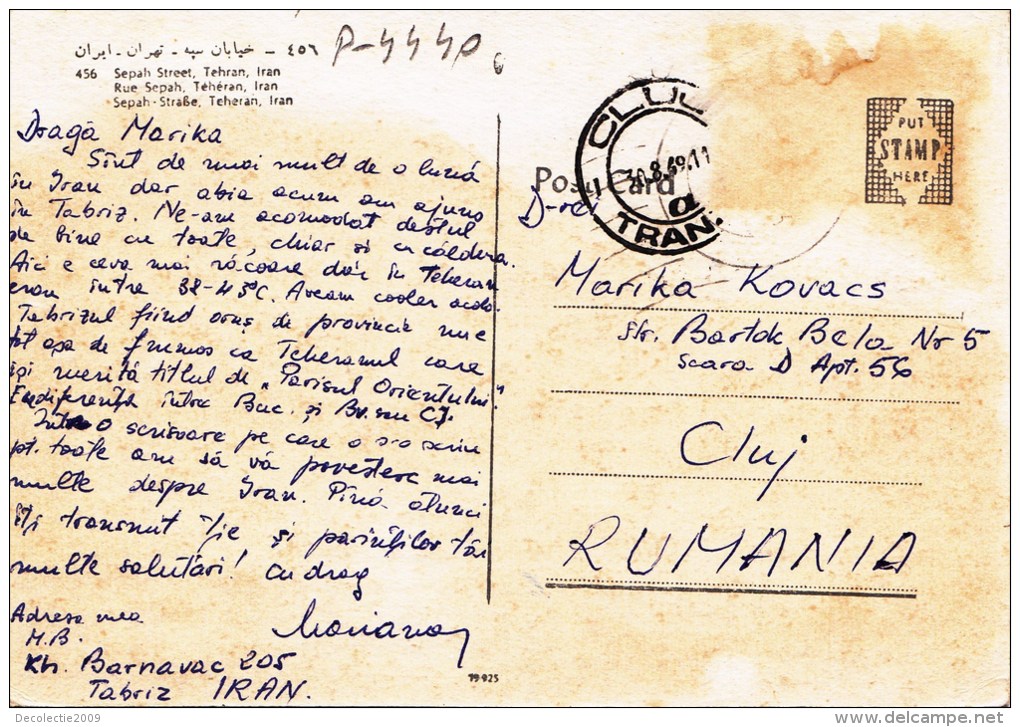 ٤٥٦ - خیابان سپه - تهران - ایران
P-4440
456 Sepah Street, Tehran, Iran
Rue Sepah, Téhéran, Iran
Sepah-Straße, Teheran, Iran
Dragă Marika
Sînt de mai mult de o lună
în Iran dar abia acum am ajuns
în Tabriz. Ne-am acomodat destul
de bine cu toate, chiar și cu căldura.
Aici e ceva mai răcoare dar în Teheran
eram între 38-45°C. Aveam cooler acolo.
Tabrizul fiind oraș de provincie nu e
tot așa de frumos ca Teheranul care
își merită titlul de "Parisul Orientului".
E diferența între Buc. și Bv. sau CJ.
Într-o scrisoare pe care o s-o scriu
pt. toate am să vă povestesc mai
multe despre Iran. Pînă atunci
îți transmit ție și părinților tăi
multe salutări! Cu drag
Mariana
Adresa mea
M.B.
Kh. Barnavac 205
Tabriz IRAN.
CLUJ
30.8.69.11
a
TRAN.
PUT
STAMP
HERE
Post Card
D-rei
Marika Kovacs
str. Bartok Bela Nr 5
scara D Apt. 56
Cluj
RUMANIA
79925
Decolectie2009
delcampe.net